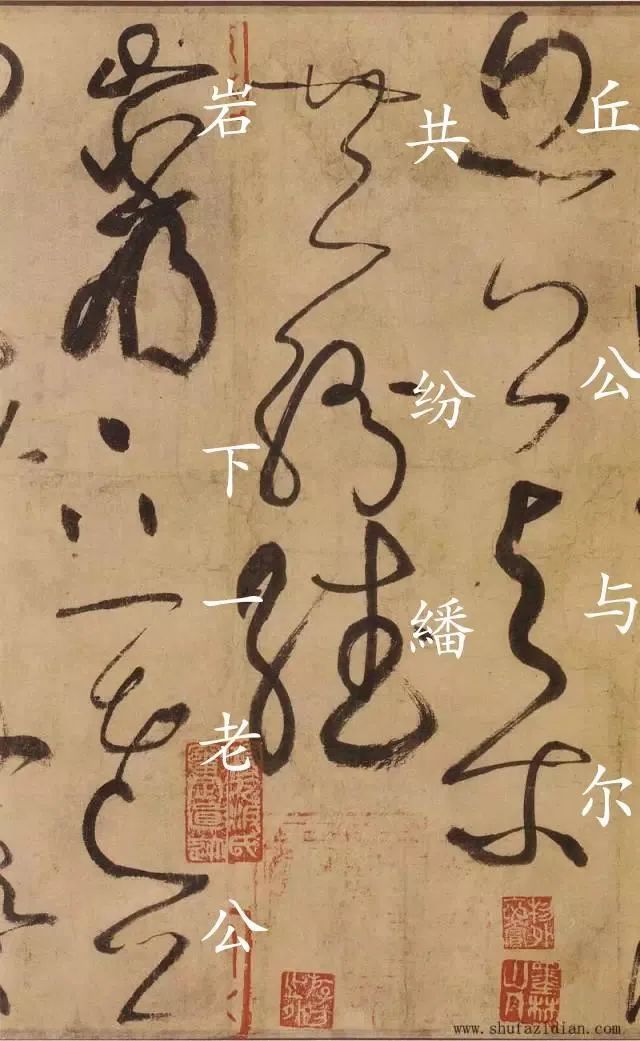 丘公与尔
共纷繙
岩下一老公
www.shufazidian.com